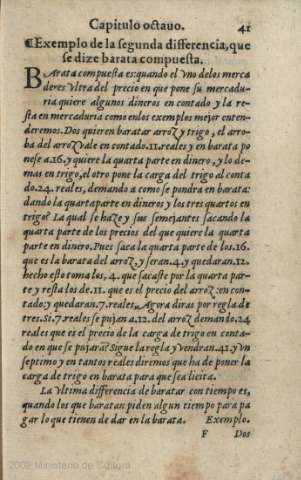 Capitulo octauo. 41
¶Exemplo de la segunda differencia, que
se dize barata compuesta.
BArata compuesta es: quando el vno delos merca
deres vltra del precio en que pone su mercadu-
ria quiere algunos dineros en contado y la re-
sta en mercaduria como enlos exemplos mejor enten-
deremos. Dos quieren baratar arroz y trigo, el arro-
ba del arroz vale en contado. 11. reales y en barata po
nese a. 16. y quiere la quarta parte en dinero, y lo de-
mas en trigo, el otro pone la carga del trigo al conta
do. 24. reales, demando a como se pondra en barata:
dando la quarta parte en dineros y los tres quartos en
trigo? La qual se haze y sus semejantes sacando la
quarta parte de los precios del que quiere la quarta
parte en dinero. Pues saca la quarta parte de los. 16.
que es la barata del arroz, y seran. 4. y quedaran. 12.
hecho esto toma los, 4. que sacaste por la quarta par-
te y resta los de. 11. que es el precio del arroz: en con-
tado: y quedaran. 7. reales. Agora diras por regla de
tres. Si. 7. reales se pujan a. 12. del arroz demando. 24
reales que es el precio de la carga de trigo en conta-
do en que se pujarã? Sigue la regla y vendran. 41. y vn
septimo y en tantos reales diremos que ha de poner la
carga de trigo en barata para que sea licita.
La vltima differencia de baratar con tiempo es,
quando los que baratan piden algun tiempo para pa
gar lo que tienen de dar en la barata. Exemplo.
F Dos
2009 Ministerio de Cultura